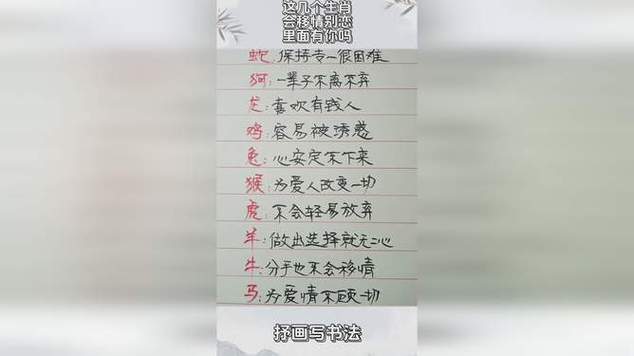 这几个生肖
会移情别恋
里面有你吗
蛇:保持专一很困难
狗:一辈子不离不弃
龙:喜欢有钱人
鸡:容易被诱惑
兔:心安定不下来
猴:为爱人改变一切
虎:不会轻易放弃
羊:做出选择就无二心
牛:分手也不会移情
马:为爱情不顾一切
抒画写书法